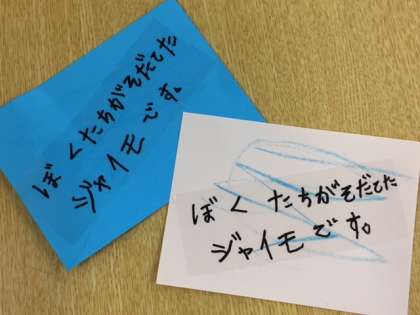 ぼくたちがそだてた
ジャイモです。
ぼく たちがそだてた
ジャイモです。